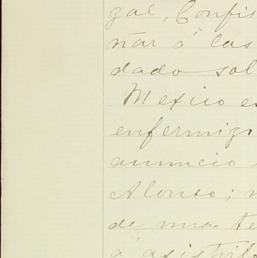 gal, Confis
nar á las
dado sol
Mexico es
enfermiz
anuncio
Alonso; n
de una te
á asistirlo